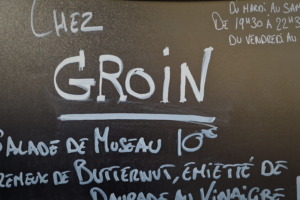 CHEZ
GROIN
DU MARDI AU SAM
DE 19H30 À 22H3
DU VENDREDI AU
SALADE DE MUSEAU 10€
CREMEUX DE BUTTERNUT, ÉMIETTÉ DE
DAURADE AU VINAIGRE